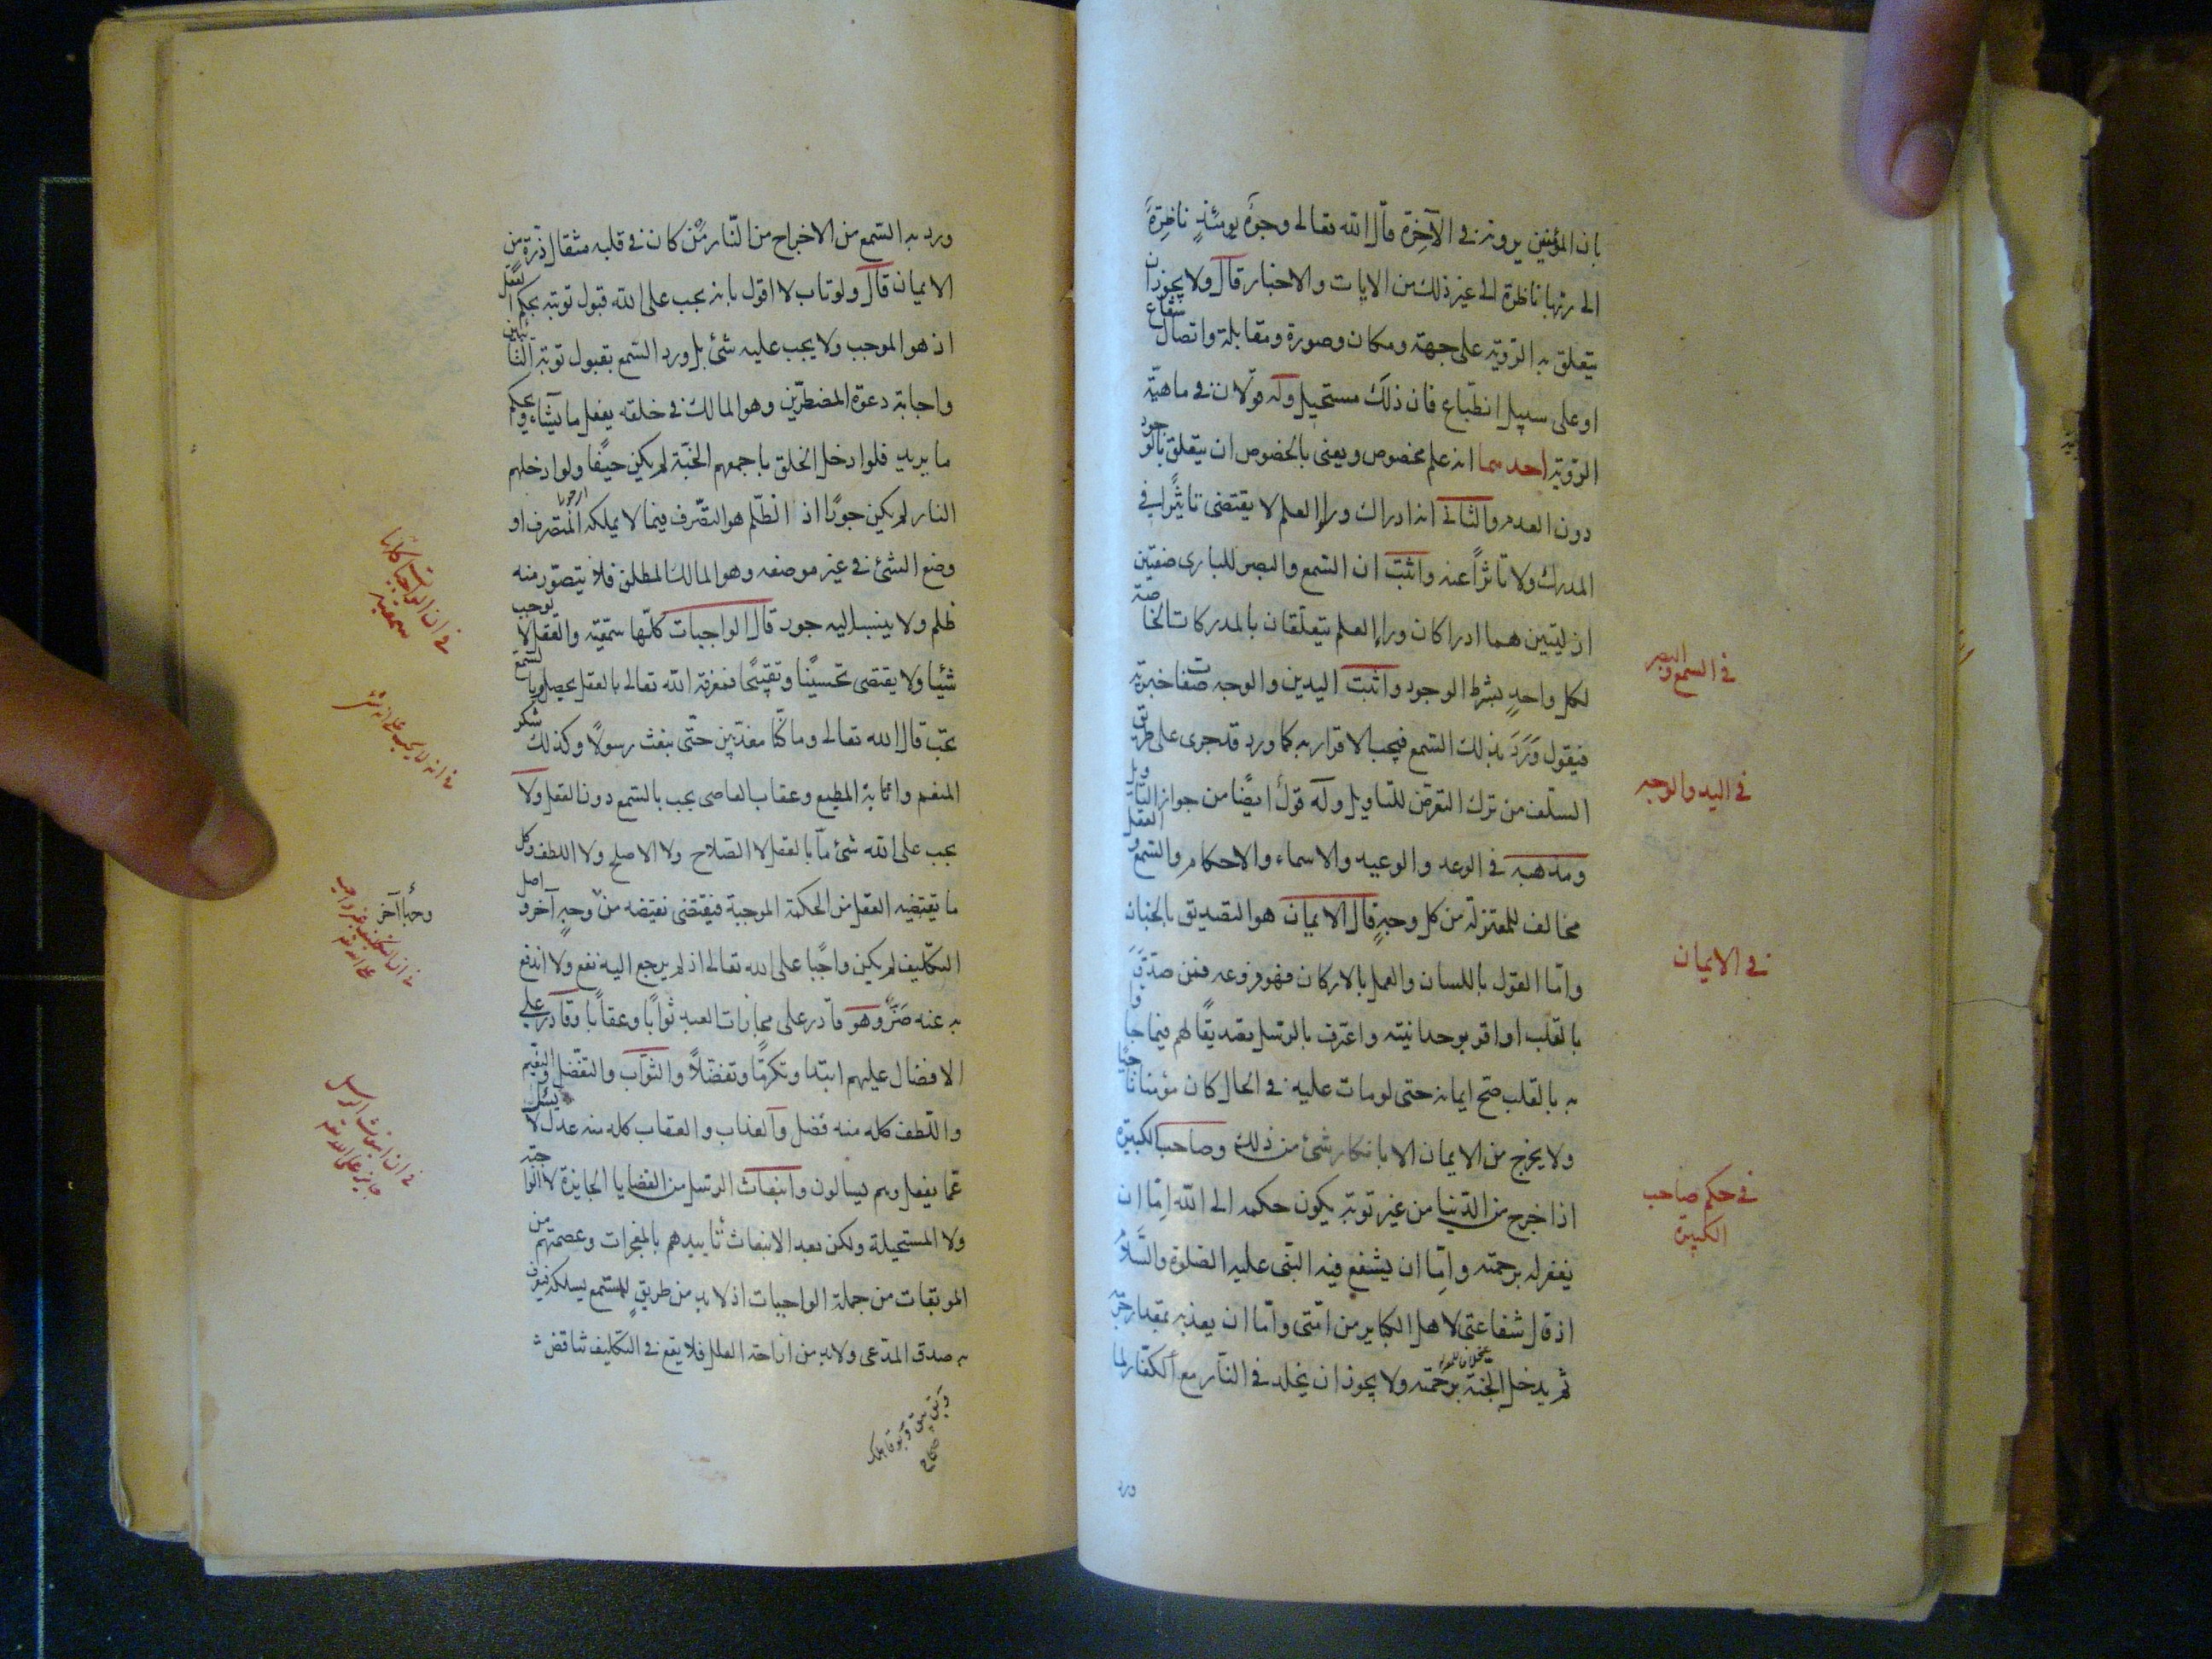 بان المؤمنين يرونه في الآخرة قال الله تعالى وجوهٌ يومئذٍ ناضرةٌ
الى ربها ناظرة الى غير ذلك من الايات والاخبار قال ولا يجوز ان
يتعلق به الرؤية على جهة ومكان وصورة ومقابلة واتصال شعاع
او على سبيل انطباع فان ذلك مستحيل وله قولان في ماهيّة
الرؤية احدهما انه علم مخصوص ويعنى بالخصوص ان يتعلق بالوجود
دون العدم والثاني انه ادراك وراء العلم لا يقتضى تاثيرًا في
المدرك ولا تاثرًا عنه واثبت ان السمع والبصر للبارى صفتين
ازليتين هما ادراكان وراء العلم يتعلقان بالمدركات الخاصة
لكل واحدٍ بشرط الوجود واثبت اليدين والوجه صفات خبرية
فيقول وَرَدَ بذلك السمع فيجب الاقرار به كما ورد قد جرى على طريق
السلف من ترك التعرض للتاويل وله قولٌ ايضًا من جواز التاويل
ومذهبه في الوعد والوعيد والاسماء والاحكام والسمع والعقل
مخالف للمعتزلة من كل وجهٍ قال الايمان هو التصديق بالجنان
وامّا القول باللسان والعمل بالاركان فهو فروعه فمن صدّقَ
بالقلب او اقر بوحدانيته واعترف بالرسل تصديقًا لهم فيما جاؤا
به بالقلب صح ايمانه حتى لو مات عليه في الحال كان مؤمنا ناجيًا
ولا يخرج من الايمان الا بانكار شئ من ذلك وصاحب الكبيرة
اذا خرج من الدّنيا من غير توبة يكون حكمه الى الله اِمّا ان
يغفر له برحمته واِمّا ان يشفع فيه النبّى عليه الصلوة والسّلامُ
اذ قال شفاعتى لاهل الكباير من امّتى وامّا ان يعذبه بمقدار جرمه
ثم يدخل الجنة برحمته ولا يجوز ان يخلد في النار مع الكفّار لما
في السمع والبصر
في اليد والوجه
في الايمان
في حكم صاحب
الكبيرة
ورد
ورد به السّمع من الاخراج من النّار مَنْ كان في قلبه مثقال ذرّة من
الايمان قال ولو تاب لا اقول بانه يجب على الله قبول توبته بحكم العقل
اذ هو الموجب ولا يجب عليه شئ بل ورد السّمع بقبول توبة التائبين
واجابة دعوة المضطرّين وهو المالك في خلقه يفعل ما يشاء ويحكم
ما يريد فلو ادخل الخلق باجمعهم الجنّة لم يكن حيفًا ولو ادخلهم
النار لم يكن جورًا اذ الظلم هو التصّرف فيما لا يملكه المتصرف او
وضع الشئ في غير موضعه وهو المالك المطلق فلا يتصوّر منه
ظلم ولا ينسب اليه جور قال الواجبات كلّها سمّعيّة والعقل لا يوجب
شئيا ولا يقتضى تحسينًا وتقبيحًا فمعرفة الله تعالى بالعقل يحصل وبالسمع
يجّب قال الله تعالى وما كنّا معذبين حتّى نبعث رسولًا وكذلك شكر
المنعم واثابة المطيع وعقاب العاصى يجب بالسّمع دون العقل ولا
يجب على الله شئ مّا بالعقل لا الصّلاح ولا الاصلح ولا اللطف وكل
ما يقتضيه العقل من الحكمة الموجبة فيقتضى نقيضه من وجهٍ آخر واصل
التكليف لم يكن واجبًا على الله تعالى اذ لم يرجع اليه نفع ولا اندفع
به عنه ضرٌّ وهو قادر على مجازات العبيد ثوابًا وعقابًا وقادر على
الافضال عليهم ابتداء وتكرمًا وتفضّلًا والثوّاب والتفضّل والنعيم
واللطف كله منه فضل والعذاب والعقاب كله منه عدل لا يسئل
عما يفعل وهم يسالون وانبعاث الرسل من القضايا الجايزة لا الواجبة
ولا المستحيلة ولكن بعد الانبعاث تأييدهم بالمعجزات وعصمتهم من
الموبقات من جملة الواجبات اذ لا بد من طريقٍ للمستمع يسلكه فيعرف
به صدق المدّعى ولابد من ازاحة العلل فلا يقع في التكليف تناقض
وجهاً آخر